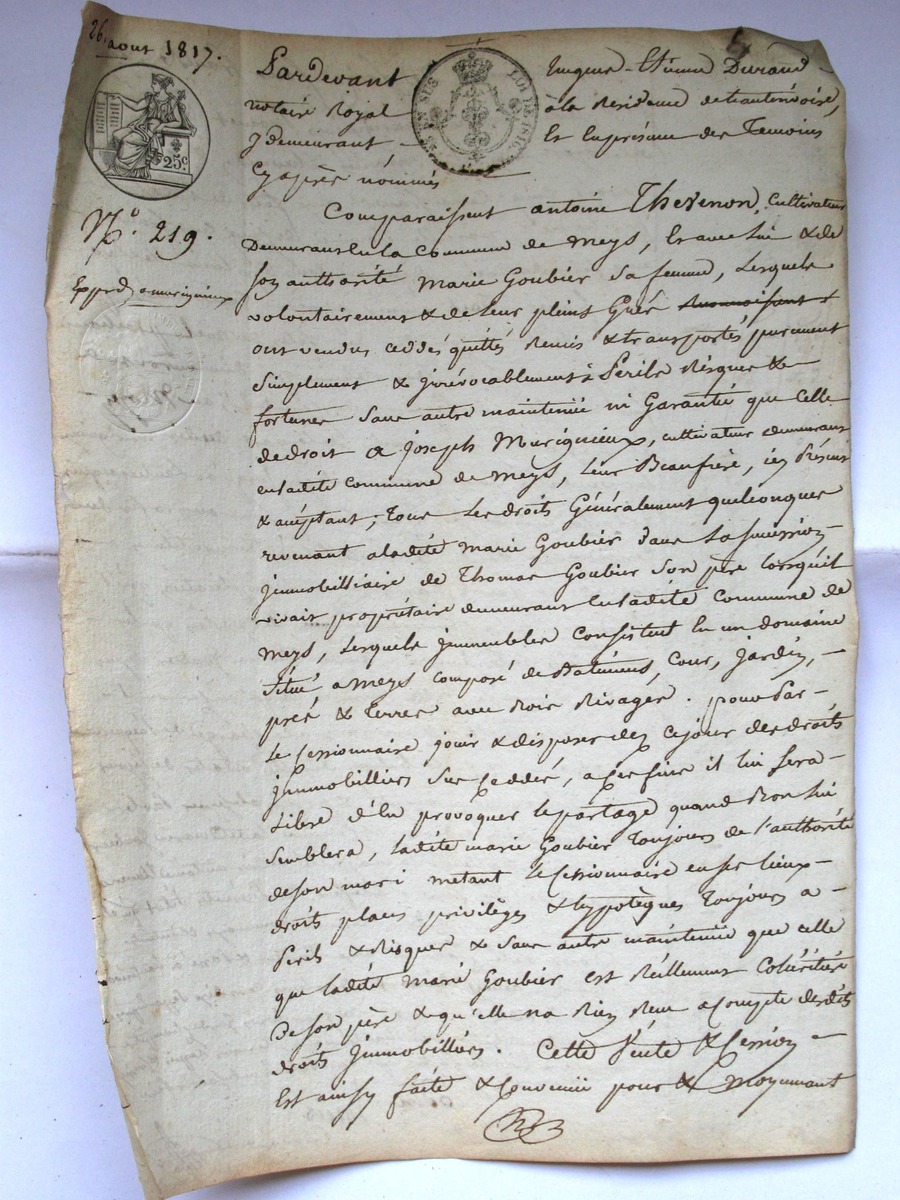 26 aout 1817.
25c
N.o 219.
Exped a murignieux
LOI DE 1816
Pardevant hugues-Etienne Durand
notaire Royal à la Residence de
y demeurant - Et En présence des Temoins
Cy après nommés
Comparaissent antoine Thevenon, cultivateur
Demeurant En la Commune de Meys, Et avec lui & de
son authorité Marie Goubier sa femme, Lesquels
volontairement & de Leur pleins Gré
ont vendus ceddés quéttés Remis & transportés purement
simplement & jrrévocablement à Périls Risques &
fortunes Sans autre maintenüe ni Garantié que Celle
de droit a Joseph Murignieux, cultivateur demeurant
en ladite commune de Meys, Leur Beaufrère, icy Présent
& acéptant; Tous Les droits Généralement quelconques
revenant a ladité marie Goubier dans La succession
jmmobilliaire de Thomas Goubier Son père lorsquil
vivait propriétaire demeurant En ladité commune de
Meys, Lesquels jmmeubles Consistent En un domaine
situé a Meys composé de Batimens, Cour, Jardin, -
préz & terres avec Rivages. pour Par -
Le Cessionnaire jouir & disposer dez Cejour des droits
jmmobilliers Sus Ceddés, a Ces fins il lui Sera -
Libre d'En provoquer Le partage quand Bon Lui
Semblera, Ladité marie Goubier Toujours de l'authorité
de son mari metant Le Cessionnaire en ses Lieux -
droits places privilèges & hypotèques Toujours a -
Périls & Risques & Sans autre maintenüe que celle
que Ladité Marie Goubier est Réellement Cohéritière
De son père & qu'elle na Rien Recu acompte desdits
droits Jmmobilliers. Cette Vente & Cession -
Est ainsy faité & Convenüe pour & Moyennant